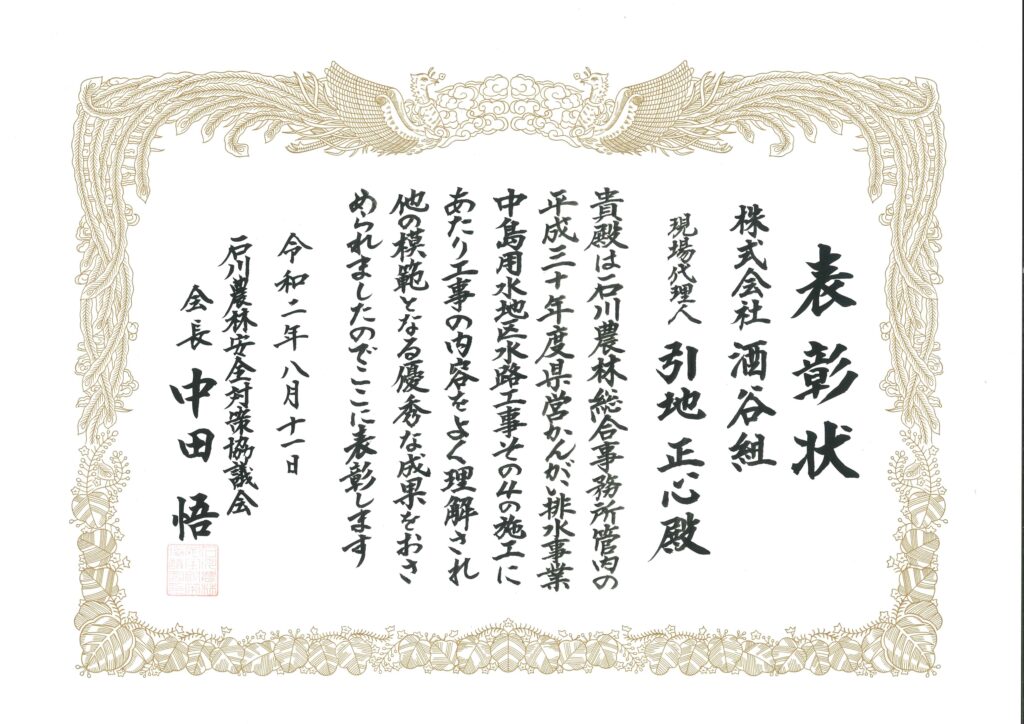 表彰状
株式会社 酒谷組
現場代理人 引地 正心殿
貴殿は石川農林総合事務所管内の
平成三十年度県営かんがい排水事業
中島用水地区水路工事その4の施工に
あたり工事の内容をよく理解され
他の模範となる優秀な成果をおさ
められましたのでここに表彰します
令和二年八月十一日
石川農林安全対策協議会
会長 中田 悟